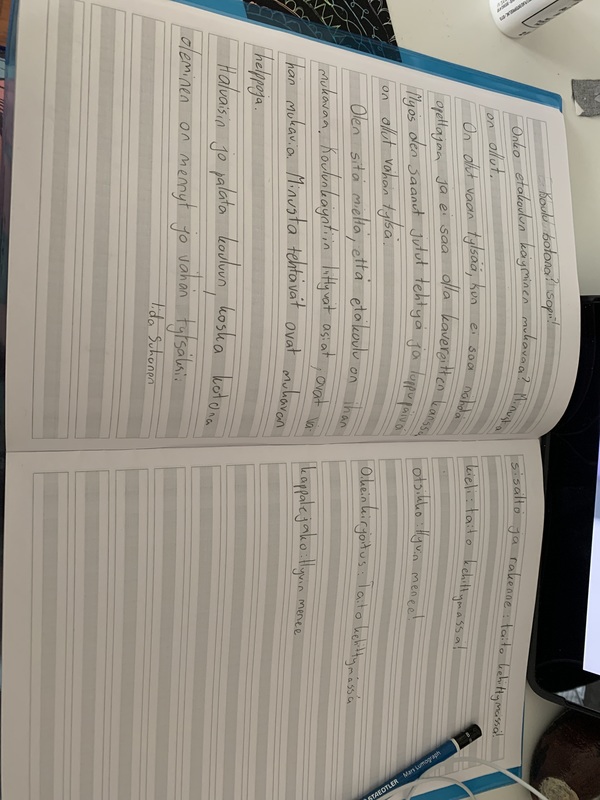 Koulu kotona? sopii!
Onko etäkoulun käyminen mukavaa? Minusta
on ollut.
On ollut vaan tylsää, kun ei saa nähdä
opettajaa ja ei saa olla kavereitten kanssa.
Myös olen saanut jutut tehtyä ja loppupäivä
on ollut vähän tylsä.
Olen sitä mieltä, että etäkoulu on ihan
mukavaa. Koulunkäyntiin liittyvät asiat, ovat vä-
hän mukavia. Minusta tehtävät ovat mukavan
helppoja.
Haluaisin jo palata kouluun, koska kotona
oleminen on mennyt jo vähän tylsäksi.
Iida Suhonen
sisältö ja rakenne: taito kehittymässä!
kieli: taito kehittymässä!
otsikko: Hyvin menee!
Oikeinkirjoitus: Taito kehittymässä
kappalejako: Hyvin menee
STAEDTLER Mars Lumograph